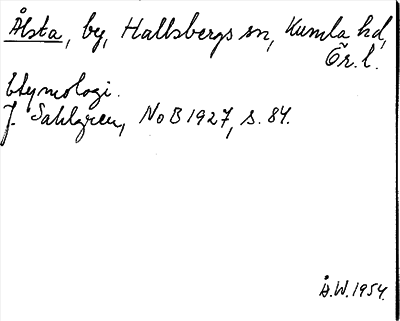 Ålsta, by, Hallsbergs sn, Kumla hd,
Ör. l.
Etymologi.
J. Sahlgren, NoB 1927, s. 84.
Å.W. 1954.